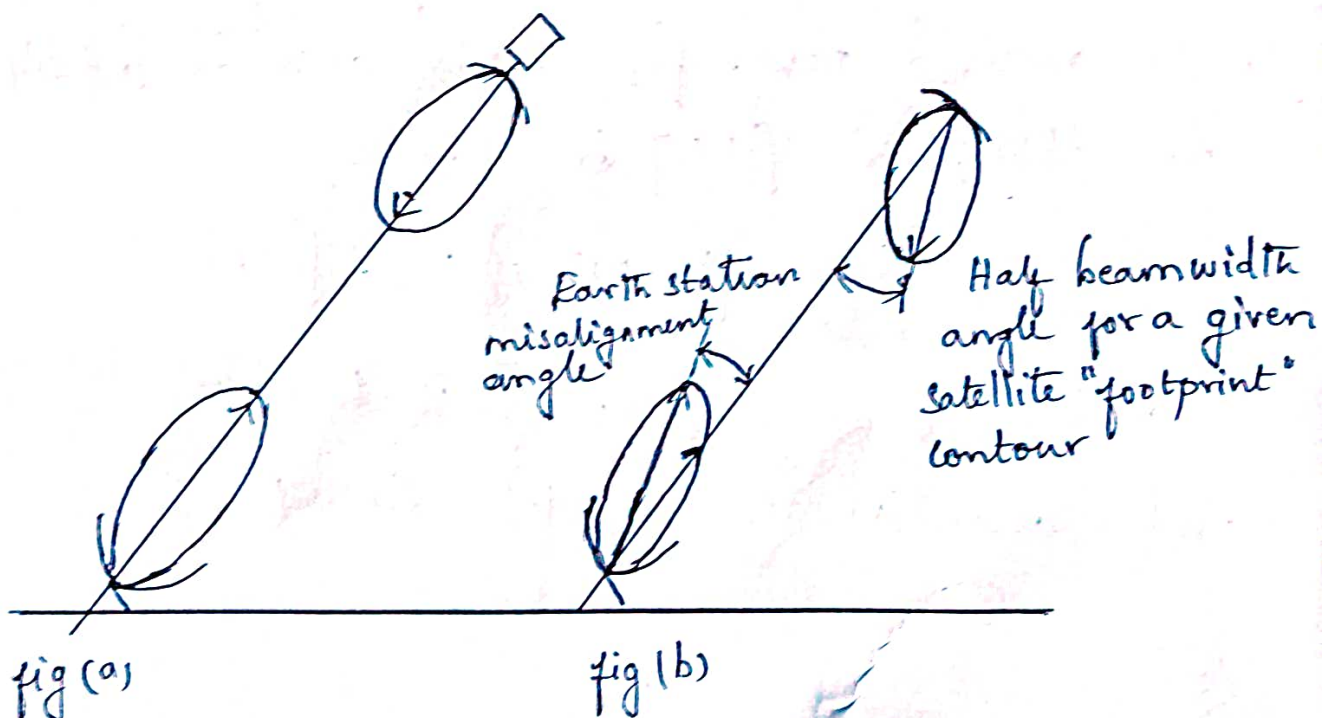 Earth station
misalignment
angle
Half beamwidth
angle for a given
satellite "footprint"
contour
fig (a)
fig (b)